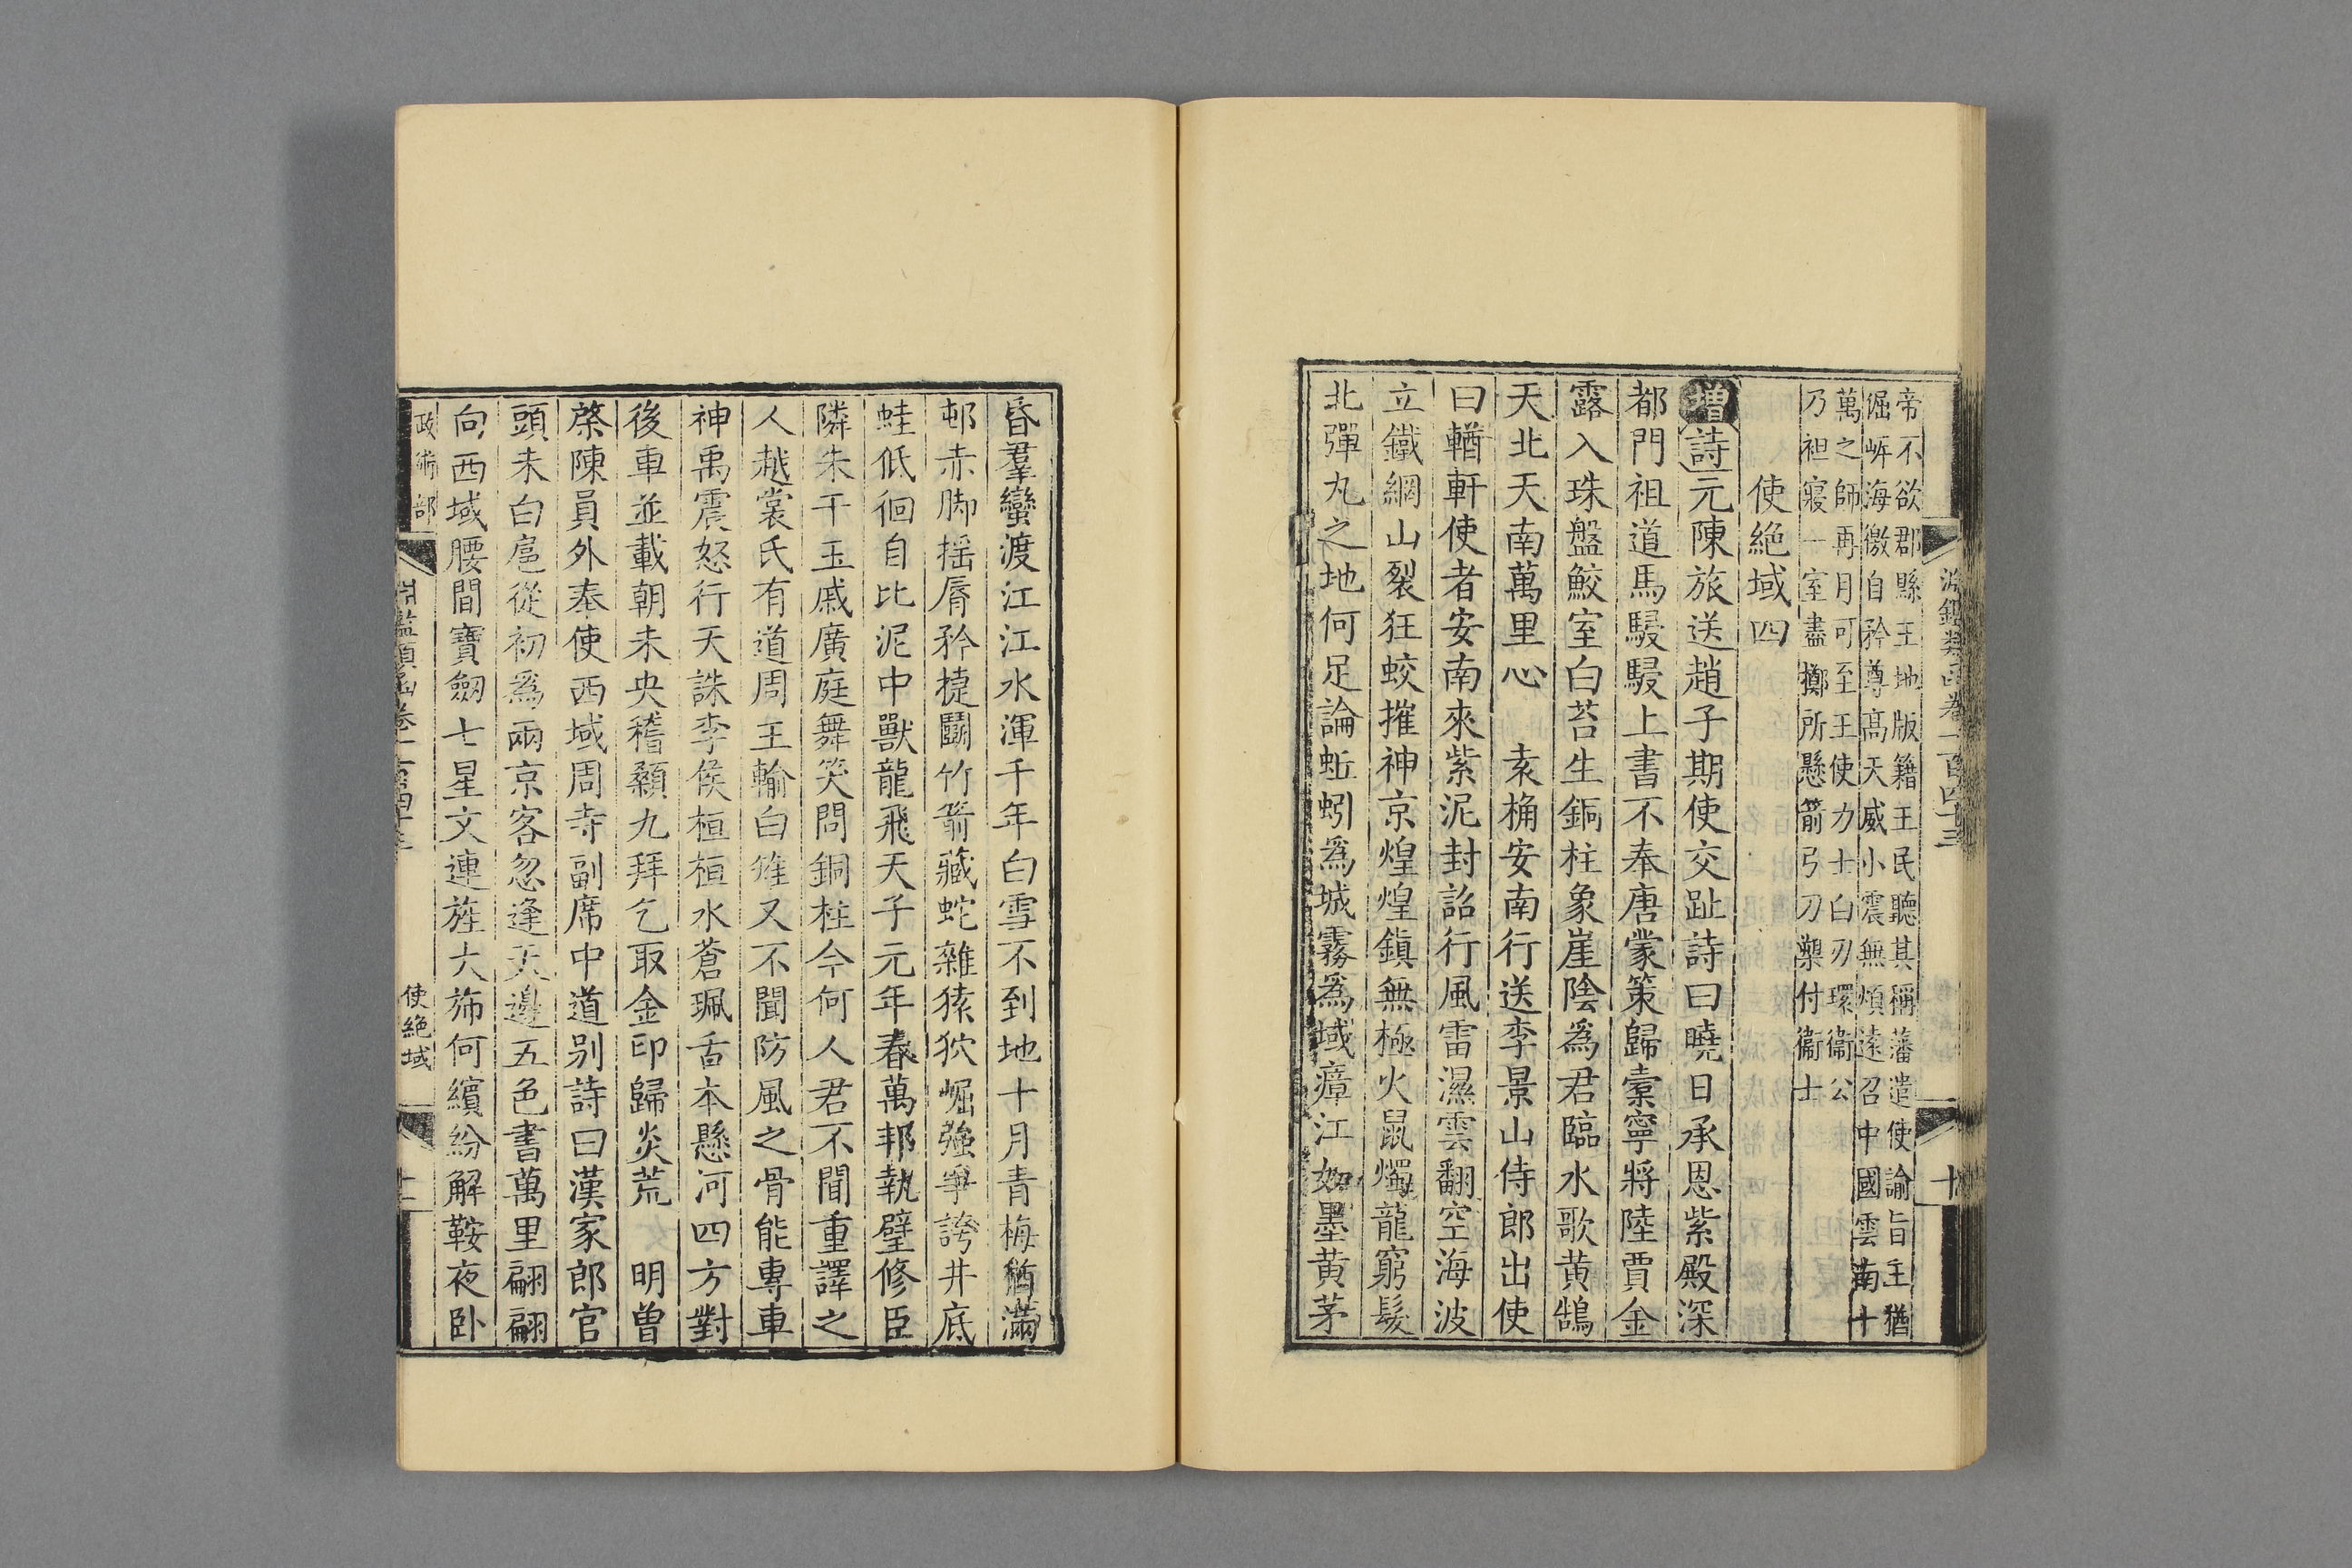 帝不欲郡縣王地版籍王民聽其稱藩遣使諭旨王猶
倔㟁海徼自矜尊高天威小震無煩遠召中國雲南十
萬之師再月可至王使力士白刃環衞公
乃袒寢一室盡擲所懸箭弓刀槊付衞士
使絕域四
增詩元陳旅送趙子期使交趾詩曰曉日承恩紫殿深
都門祖道馬駸駸上書不奉唐蒙策歸橐寧將陸賈金
露入珠盤鮫室白苔生銅柱象崖陰為君臨水歌黃鵠
天北天南萬里心　袁桷安南行送李景山侍郎出使
曰輶軒使者安南來紫泥封詔行風雷濕雲翻空海波
立鐵網山裂狂蛟摧神京煌煌鎮無極火鼠燭龍窮髮
北彈丸之地何足論蚯蚓為城霧為域瘴江如墨黃茅
淵鑑類函卷一百四十三
十
昏羣蠻渡江江水渾千年白雪不到地十月青梅猶滿
邨赤脚搖脣矜捷鬭竹箭藏蛇雜猿狖崛強爭誇井底
蛙低徊自比泥中獸龍飛天子元年春萬邦執璧修臣
隣朱干玉戚廣庭舞笑問銅柱今何人君不聞重譯之
人越裳氏有道周王輸白雉又不聞防風之骨能專車
神禹震怒行天誅李侯桓桓水蒼珮舌本懸河四方對
後車並載朝未央稽顙九拜乞取金印歸炎荒　明曾
棨陳員外奉使西域周寺副席中道别詩曰漢家郎官
頭未白扈從初為兩京客忽逢天邊五色書萬里翩翩
向西域腰間寶劒七星文連旌大斾何繽紛解鞍夜卧
政術部
淵鑑類函卷一百四十三
使絕域
十一